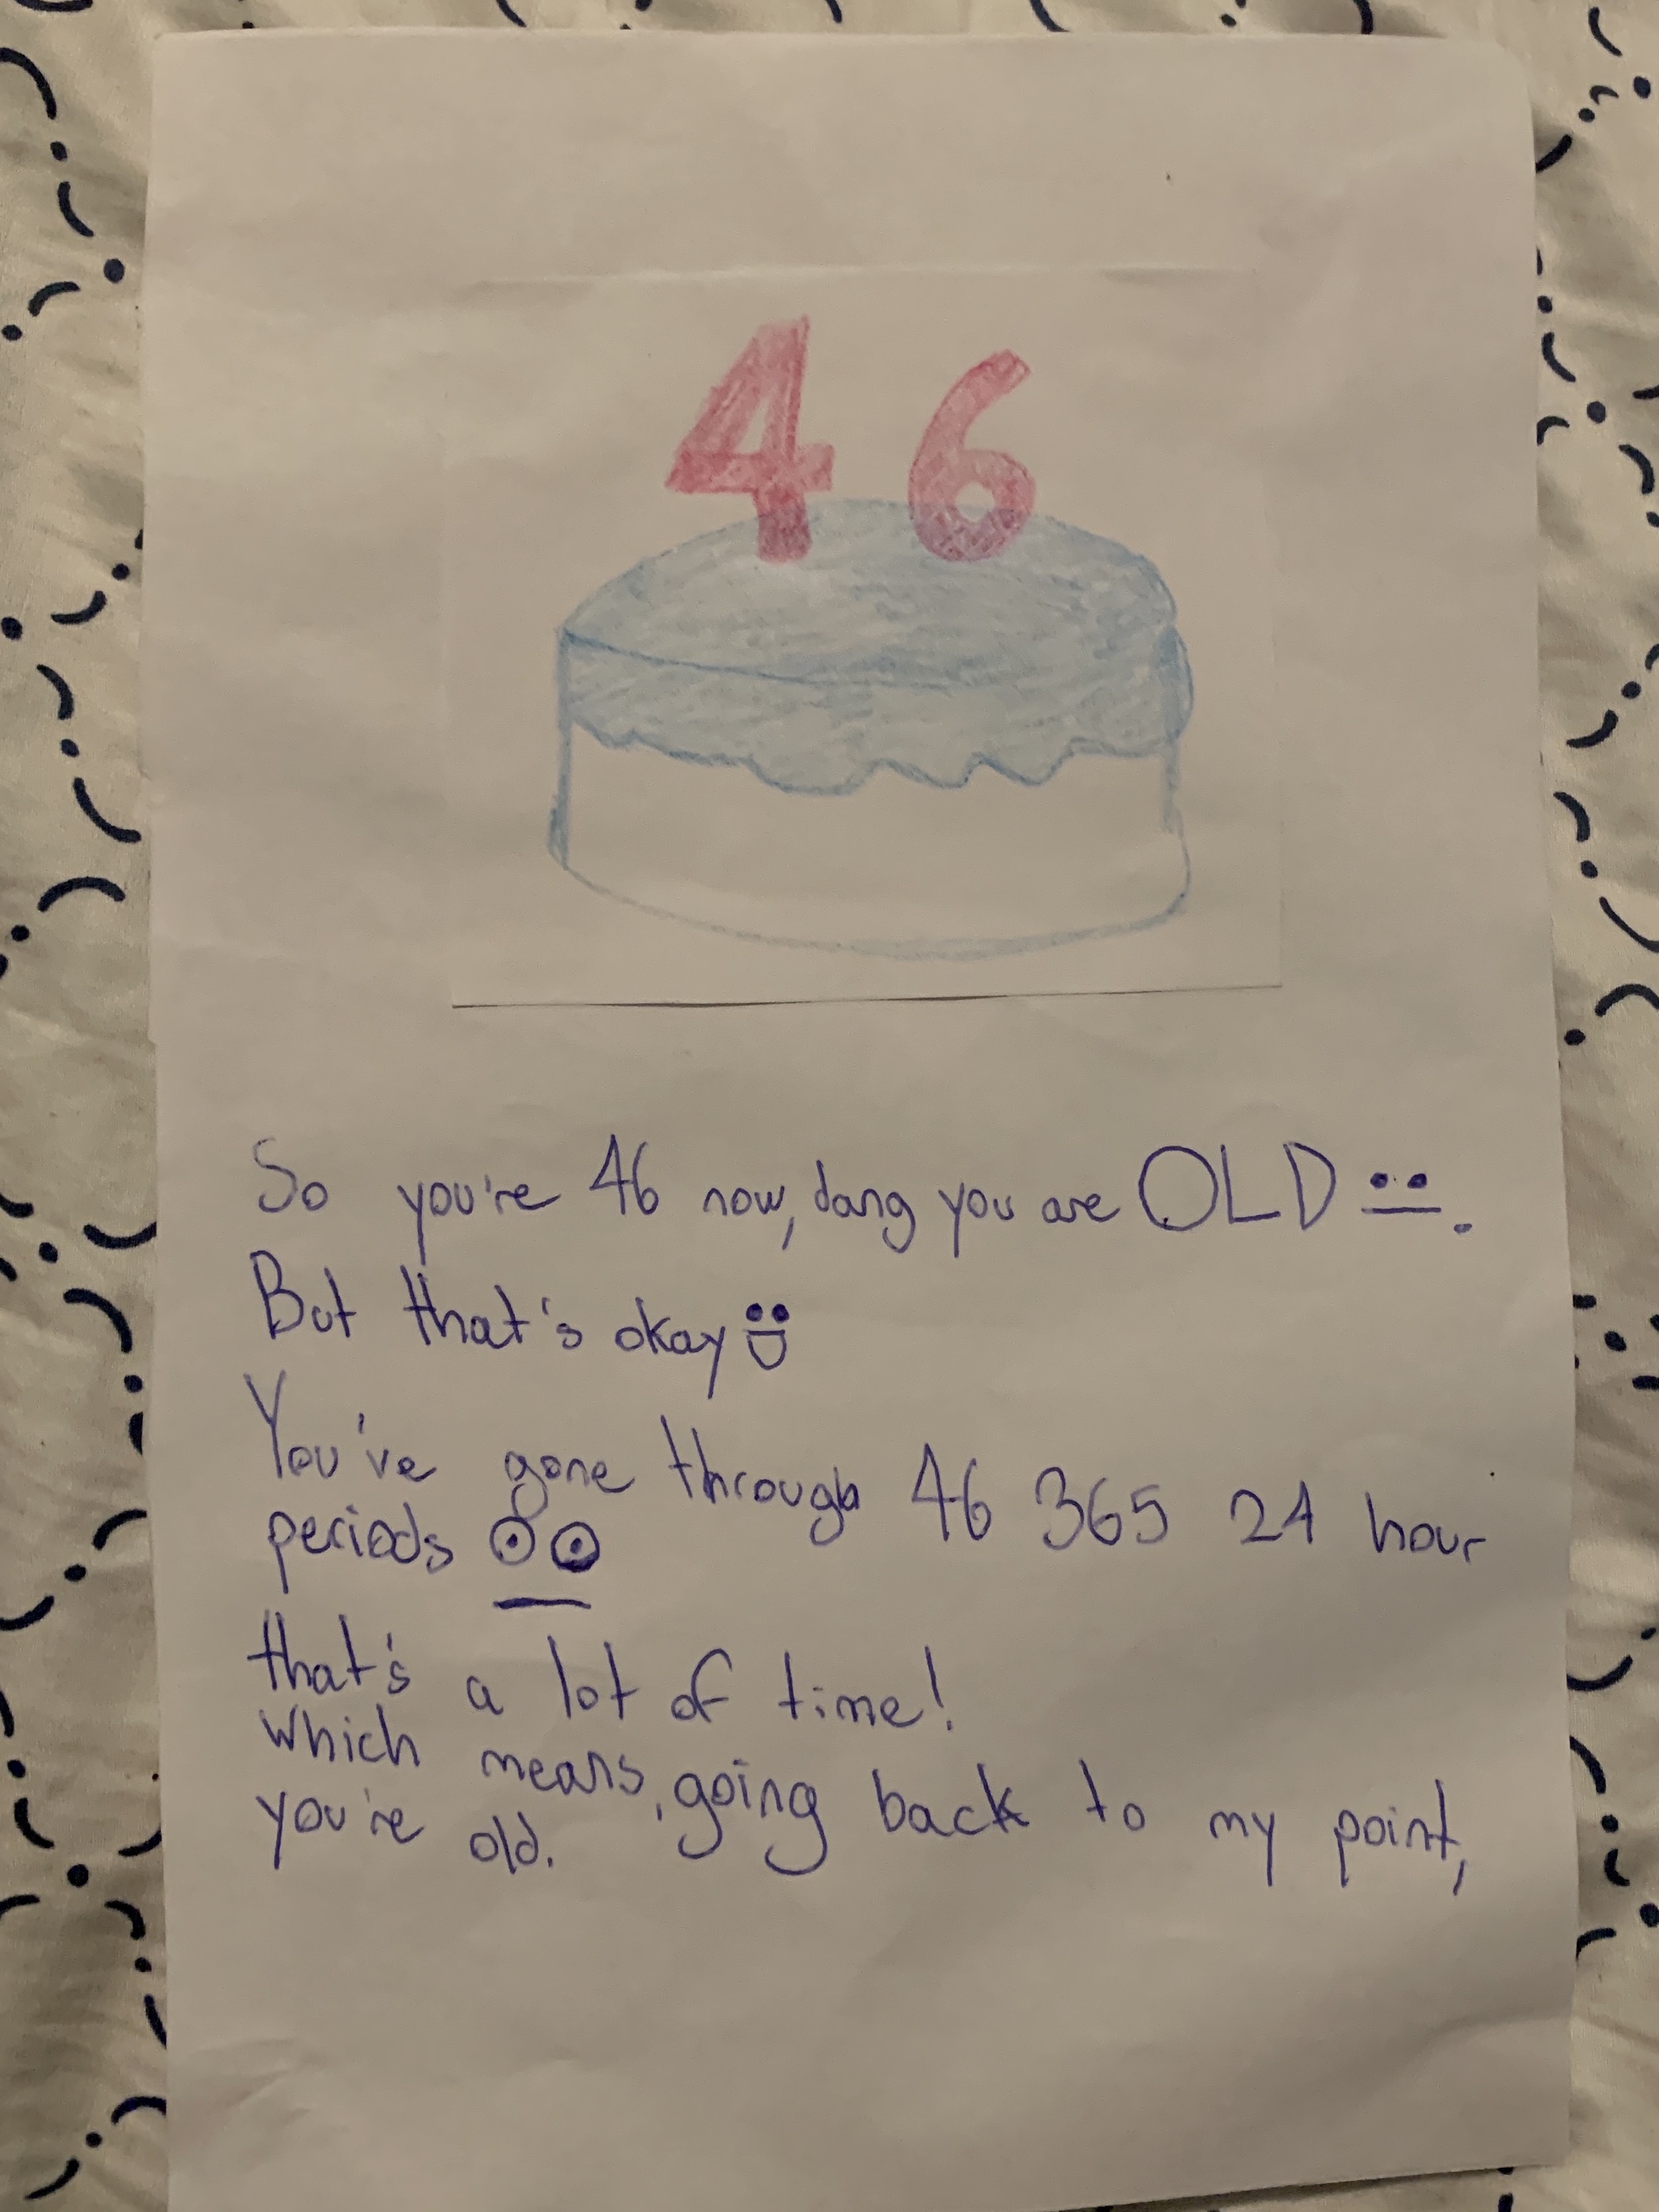 46
So you're 46 now, dang you are OLD.
But that's okay
You've gone through 46 365 24 hour
periods
that's a lot of time!
Which means, going back to my point,
you're old.